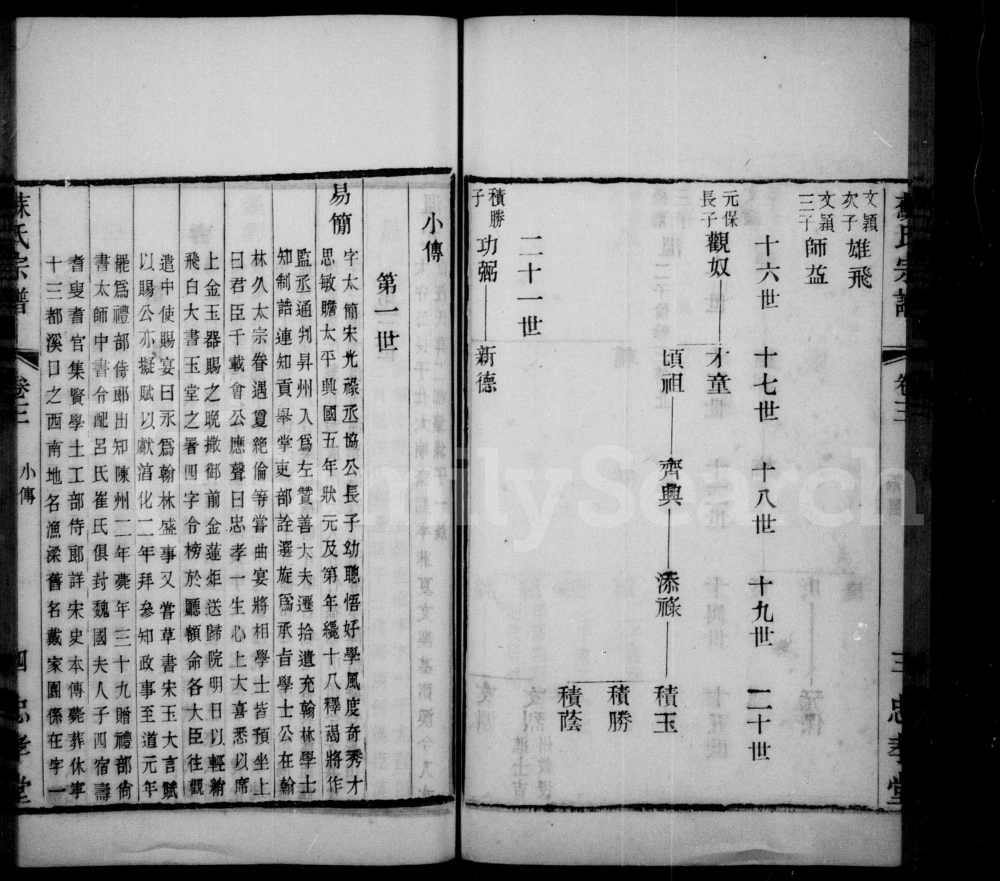 蘇氏宗譜
卷三
三 忠孝堂
文顥次子 雄飛
文顥三子 師益
十六世 十七世 十八世 十九世 二十世
元保長子 觀奴 才童
頊祖 齊興 添祿 積玉
積勝
積蔭
二十一世
積勝子 功弼 新德
小傳
第一世
易簡 字太簡宋光祿丞協公長子幼聰悟好學風度奇秀才
思敏贍太平興國五年狀元及第年纔十八釋褐將作
監丞通判昇州入爲左贊善大夫遷拾遺充翰林學士
知制誥連知貢舉掌吏部詮選旋爲承旨學士公在翰
林久太宗眷遇敻絕倫等嘗曲宴將相學士皆預坐上
曰君臣千載會公應聲曰忠孝一生心上大喜悉以席
上金玉器賜之晚撤御前金蓮炬送歸院明日以輕綃
飛白大書玉堂之署四字令榜於廳額命各大臣往觀
遣中使賜宴曰永爲翰林盛事又嘗草書宋玉大言賦
以賜公亦擬賦以獻淳化二年拜參知政事至道元年
罷爲禮部侍郎出知陳州二年薨年三十九贈禮部尙
書太師中書令配呂氏崔氏俱封魏國夫人子四宿壽
耆叟耆官集賢學士工部侍郎詳宋史本傳薨葬休寧
十三都溪口之西南地名漁梁舊名戴家園係在字一
蘇氏宗譜
卷三
小傳
四 忠孝堂
FamilySearch